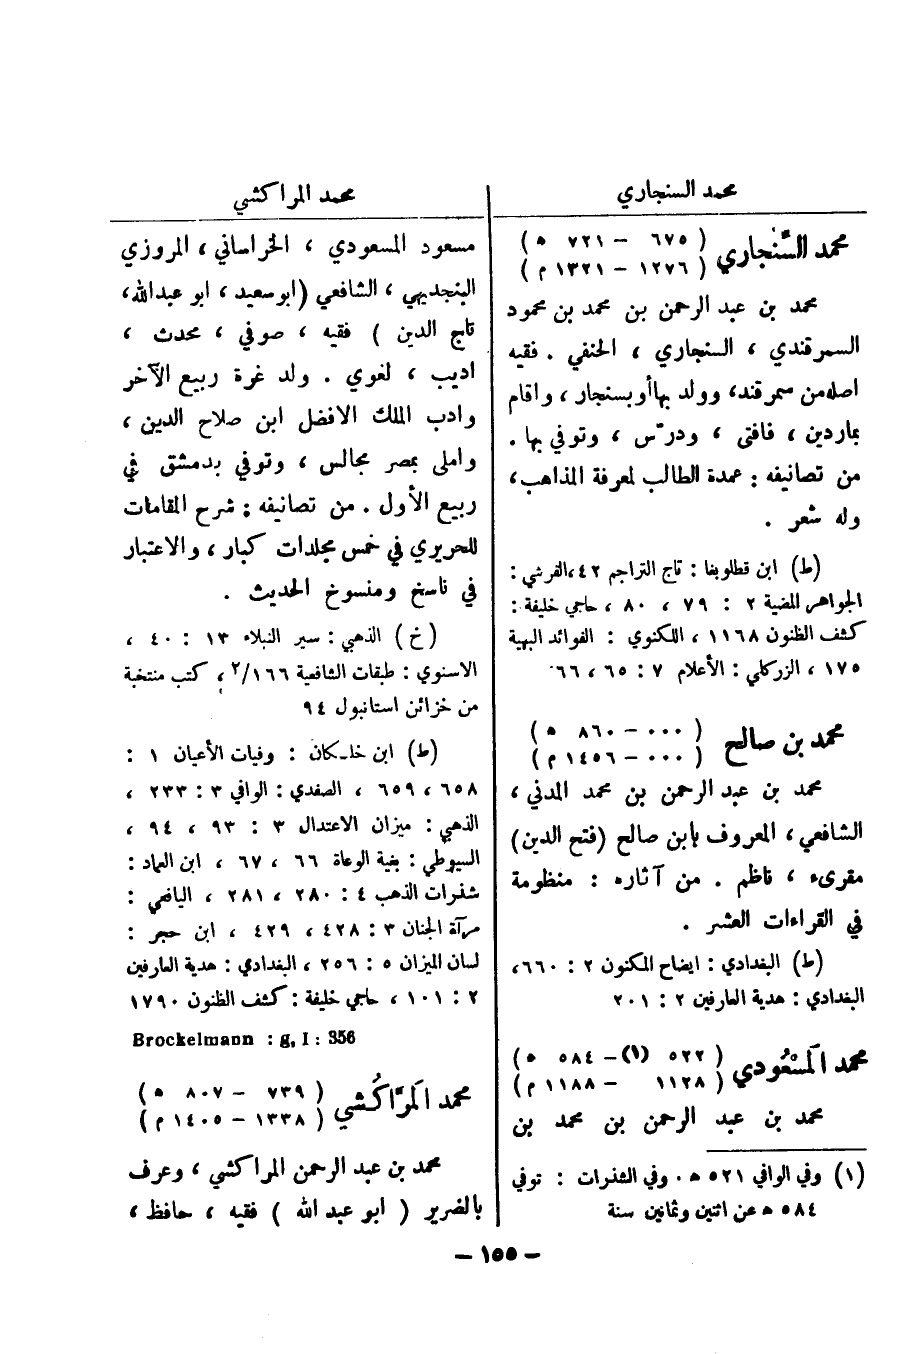 محمد السنجاري
محمد السَّنْجاري ( ٦٧٥ – ٧٢١ ه )
( ١٢٧٦ – ١٣٢١ م )
محمد بن عبد الرحمن بن محمد بن محمود
السمرقندي ، السنجاري ، الحنفي . فقيه
اصله من سمرقند، وولد بها أو بسنجار ، واقام
بماردين ، فافتى ، ودرّس ، وتوفي بها .
من تصانيفه : عمدة الطالب لمعرفة المذاهب،
وله شعر .
(ط) ابن قطلوبغا : تاج التراجم ٤٢ ،القرشي :
الجواهر المضية ٢ : ٧٩ ، ٨٠ ، حاجي خليفة :
كشف الظنون ١١٦٨ ، اللكنوي : الفوائد البهية
١٧٥ ، الزركلي : الأعلام ٧ : ٦٥ ، ٦٦
محمد بن صالح ( ٠٠٠ – ٨٦٠ ه )
( ٠٠٠ – ١٤٥٦ م )
محمد بن عبد الرحمن بن محمد المدني ،
الشافعي ، المعروف بابن صالح (فتح الدين)
مقرىء ، ناظم . من آثاره : منظومة
في القراءات العشر .
(ط) البغدادي : ايضاح المكنون ٢ : ٦٦٠ ،
البغدادي : هدية العارفين ٢ : ٢٠١
محمد المَسْعُودي ( ٥٢٢ (١) – ٥٨٤ ه )
( ١١٢٨ – ١١٨٨ م )
محمد بن عبد الرحمن بن محمد بن
(١) وفي الوافي ٥٢١ ه . وفي الشذرات : توفي
٥٨٤ ه عن اثنين وثمانين سنة
محمد المراكشي
مسعود المسعودي ، الخراساني ، المروزي
البنجديهي ، الشافعي (ابو سعيد ، ابو عبدالله،
تاج الدين ) فقيه ، صوفي ، محدث ،
اديب ، لغوي . ولد غرة ربيع الآخر
وادب الملك الافضل ابن صلاح الدين ،
واملى بمصر مجالس ، وتوفي بدمشق في
ربيع الأول . من تصانيفه : شرح المقامات
للحريري في خمس مجلدات كبار ، والاعتبار
في ناسخ ومنسوخ الحديث .
(خ) الذهبي : سير النبلاء ١٣ : ٤٠ ،
الاسنوي : طبقات الشافعية ١٦٦/٢ ، كتب منتخبة
من خزائن استانبول ٩٤
(ط) ابن خلكان : وفيات الأعيان ١ :
٦٥٨ ، ٦٥٩ ، الصفدي : الوافي ٣ : ٢٣٣ ،
الذهبي : ميزان الاعتدال ٣ : ٩٣ ، ٩٤ ،
السيوطي : بغية الوعاة ٦٦ ، ٦٧ ، ابن العماد :
شذرات الذهب ٤ : ٢٨٠ ، ٢٨١ ، اليافعي :
مرآة الجنان ٣ : ٤٢٨ ، ٤٢٩ ، ابن حجر :
لسان الميزان ٥ : ٢٥٦ ، البغدادي : هدية العارفين
٢ : ١٠١ ، حاجي خليفة : كشف الظنون ١٧٩٠
Brockelmann : g, I : 356
محمد المَرَّاكُشي ( ٧٣٩ – ٨٠٧ ه )
( ١٣٣٨ – ١٤٠٥ م )
محمد بن عبد الرحمن المراكشي ، وعرف
بالضرير ( ابو عبد الله ) فقيه ، حافظ ،
– ١٥٥ –